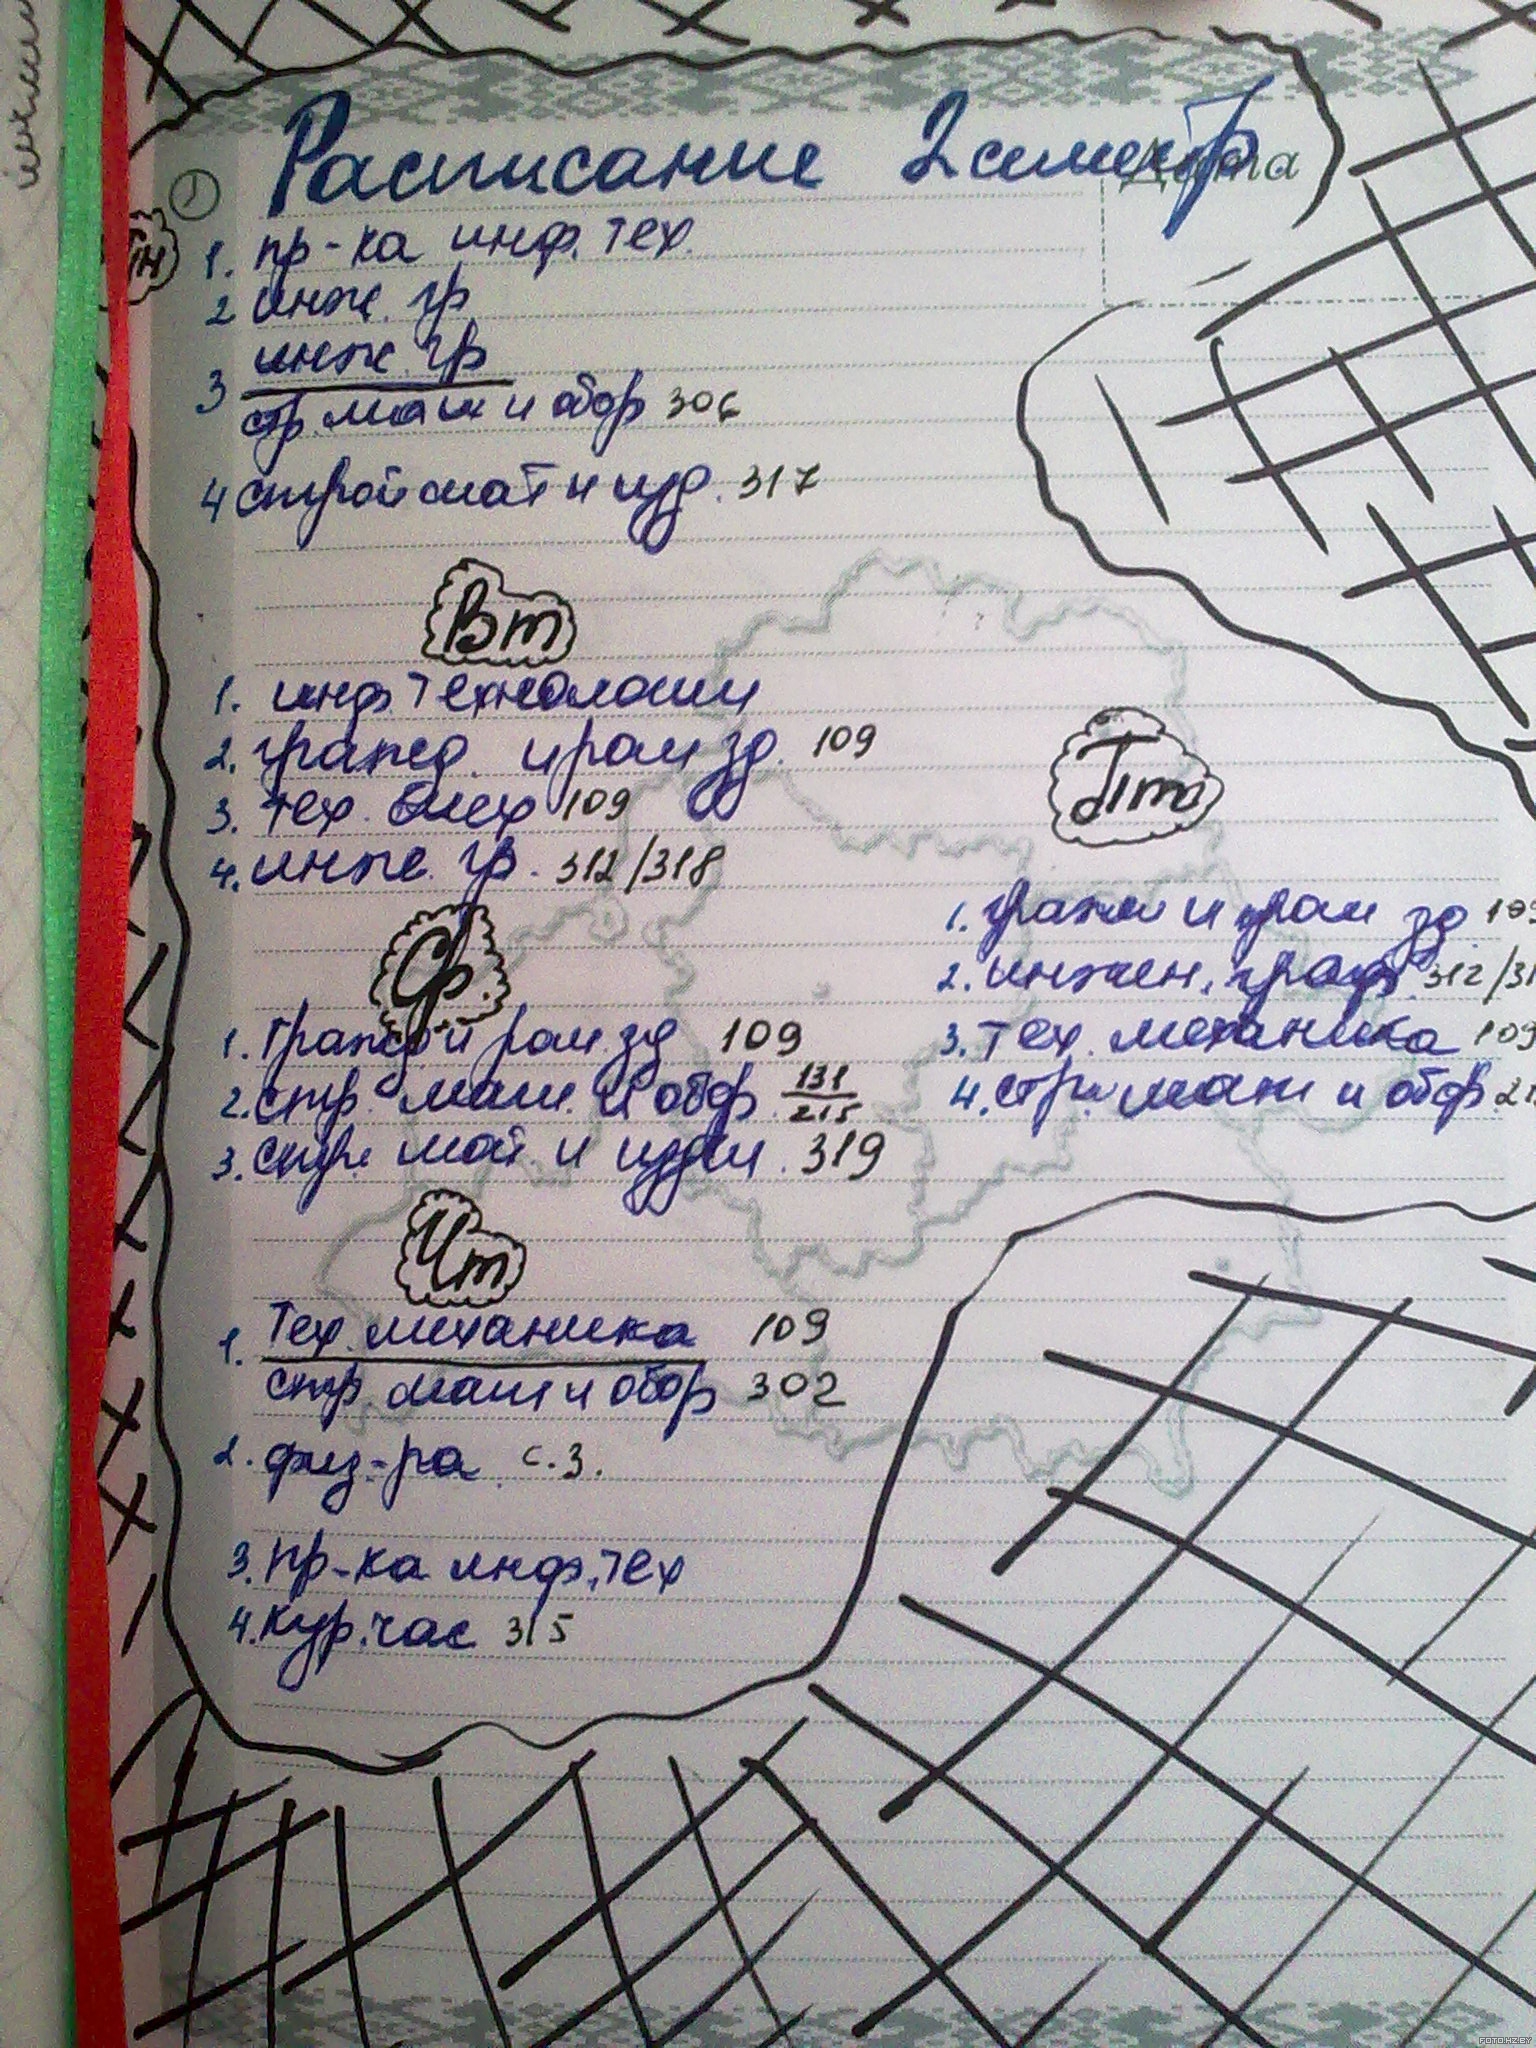 Расписание 2 семестр
Дата
Пн
1. пр-ка инф. тех.
2 инж. гр
3 инж. гр
стр. маш и обор 306
4 строй мат и изд. 317
Вт
1. инф технологии
2. гражд. и ром зд. 109
3. тех. мех 109
4. инж. гр. 312/318
Ср
1. гражд и ром. зд 109
2. стр. маш. и обор. 131/215
3. стр. мат. и издел. 319
Чт
1. Тех. механика 109
стр маш и обор 302
2. физ-ра с.з.
3. пр-ка инф. тех
4. кур. час 315
Пт
1. гражд и пром зд 109
2. инжен. граф. 312/31
3. тех. механика 109
4. стр. маш и обор. 21
FOTO.HZ.BY